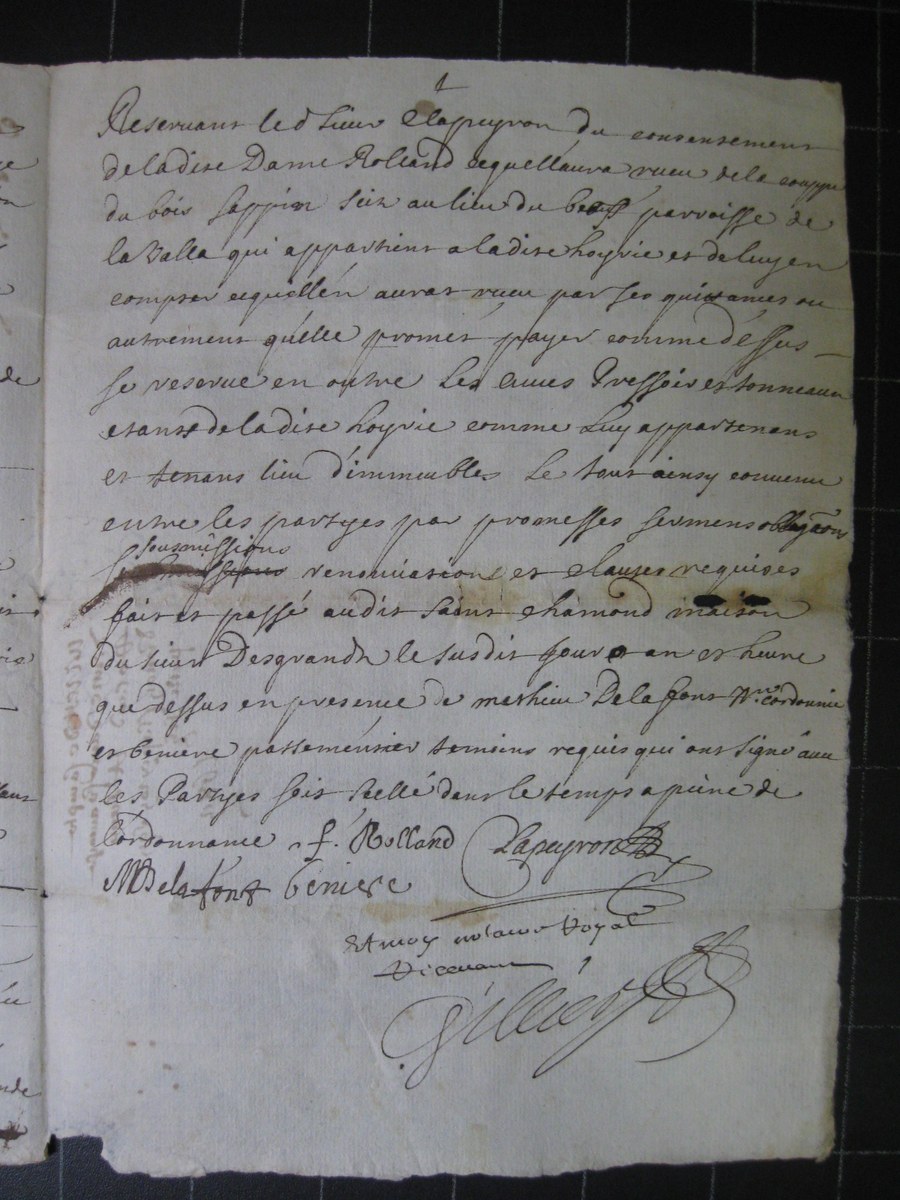 Reservant le d sieur Clapeyron du consentement
de ladite Dame Rolland cequell aura recu de la couppe
du bois sappin scit au lieu du parroisse de
la Valla qui appartient a ladite hoyrie et de luy en
compter cequellen aurat recu par ses quittances ou
autrement quelle promet payer comme dessus
se reserve en outre les cuves pressoir et tonneaux
etans de ladite hoyrie comme luy appartenans
et tenans lieu d'immeubles le tout ainsy convenu
entre les partyes par promesses sermens obligaons
sousmissions
renonciations et clauses requises
fait et passé audit saint chamond maison
du sieur Desgrands le susdit jour an et heure
que dessus en presence de mathieu Delafont cordonnier
et beniere passementier temoins requis qui ont signé avec
les Partyes soit scellé dans le temps a peine de
l'ordonnance f. Rolland Clapeyron
M Delafont beniere
Et moy notaire Royal
Recevant